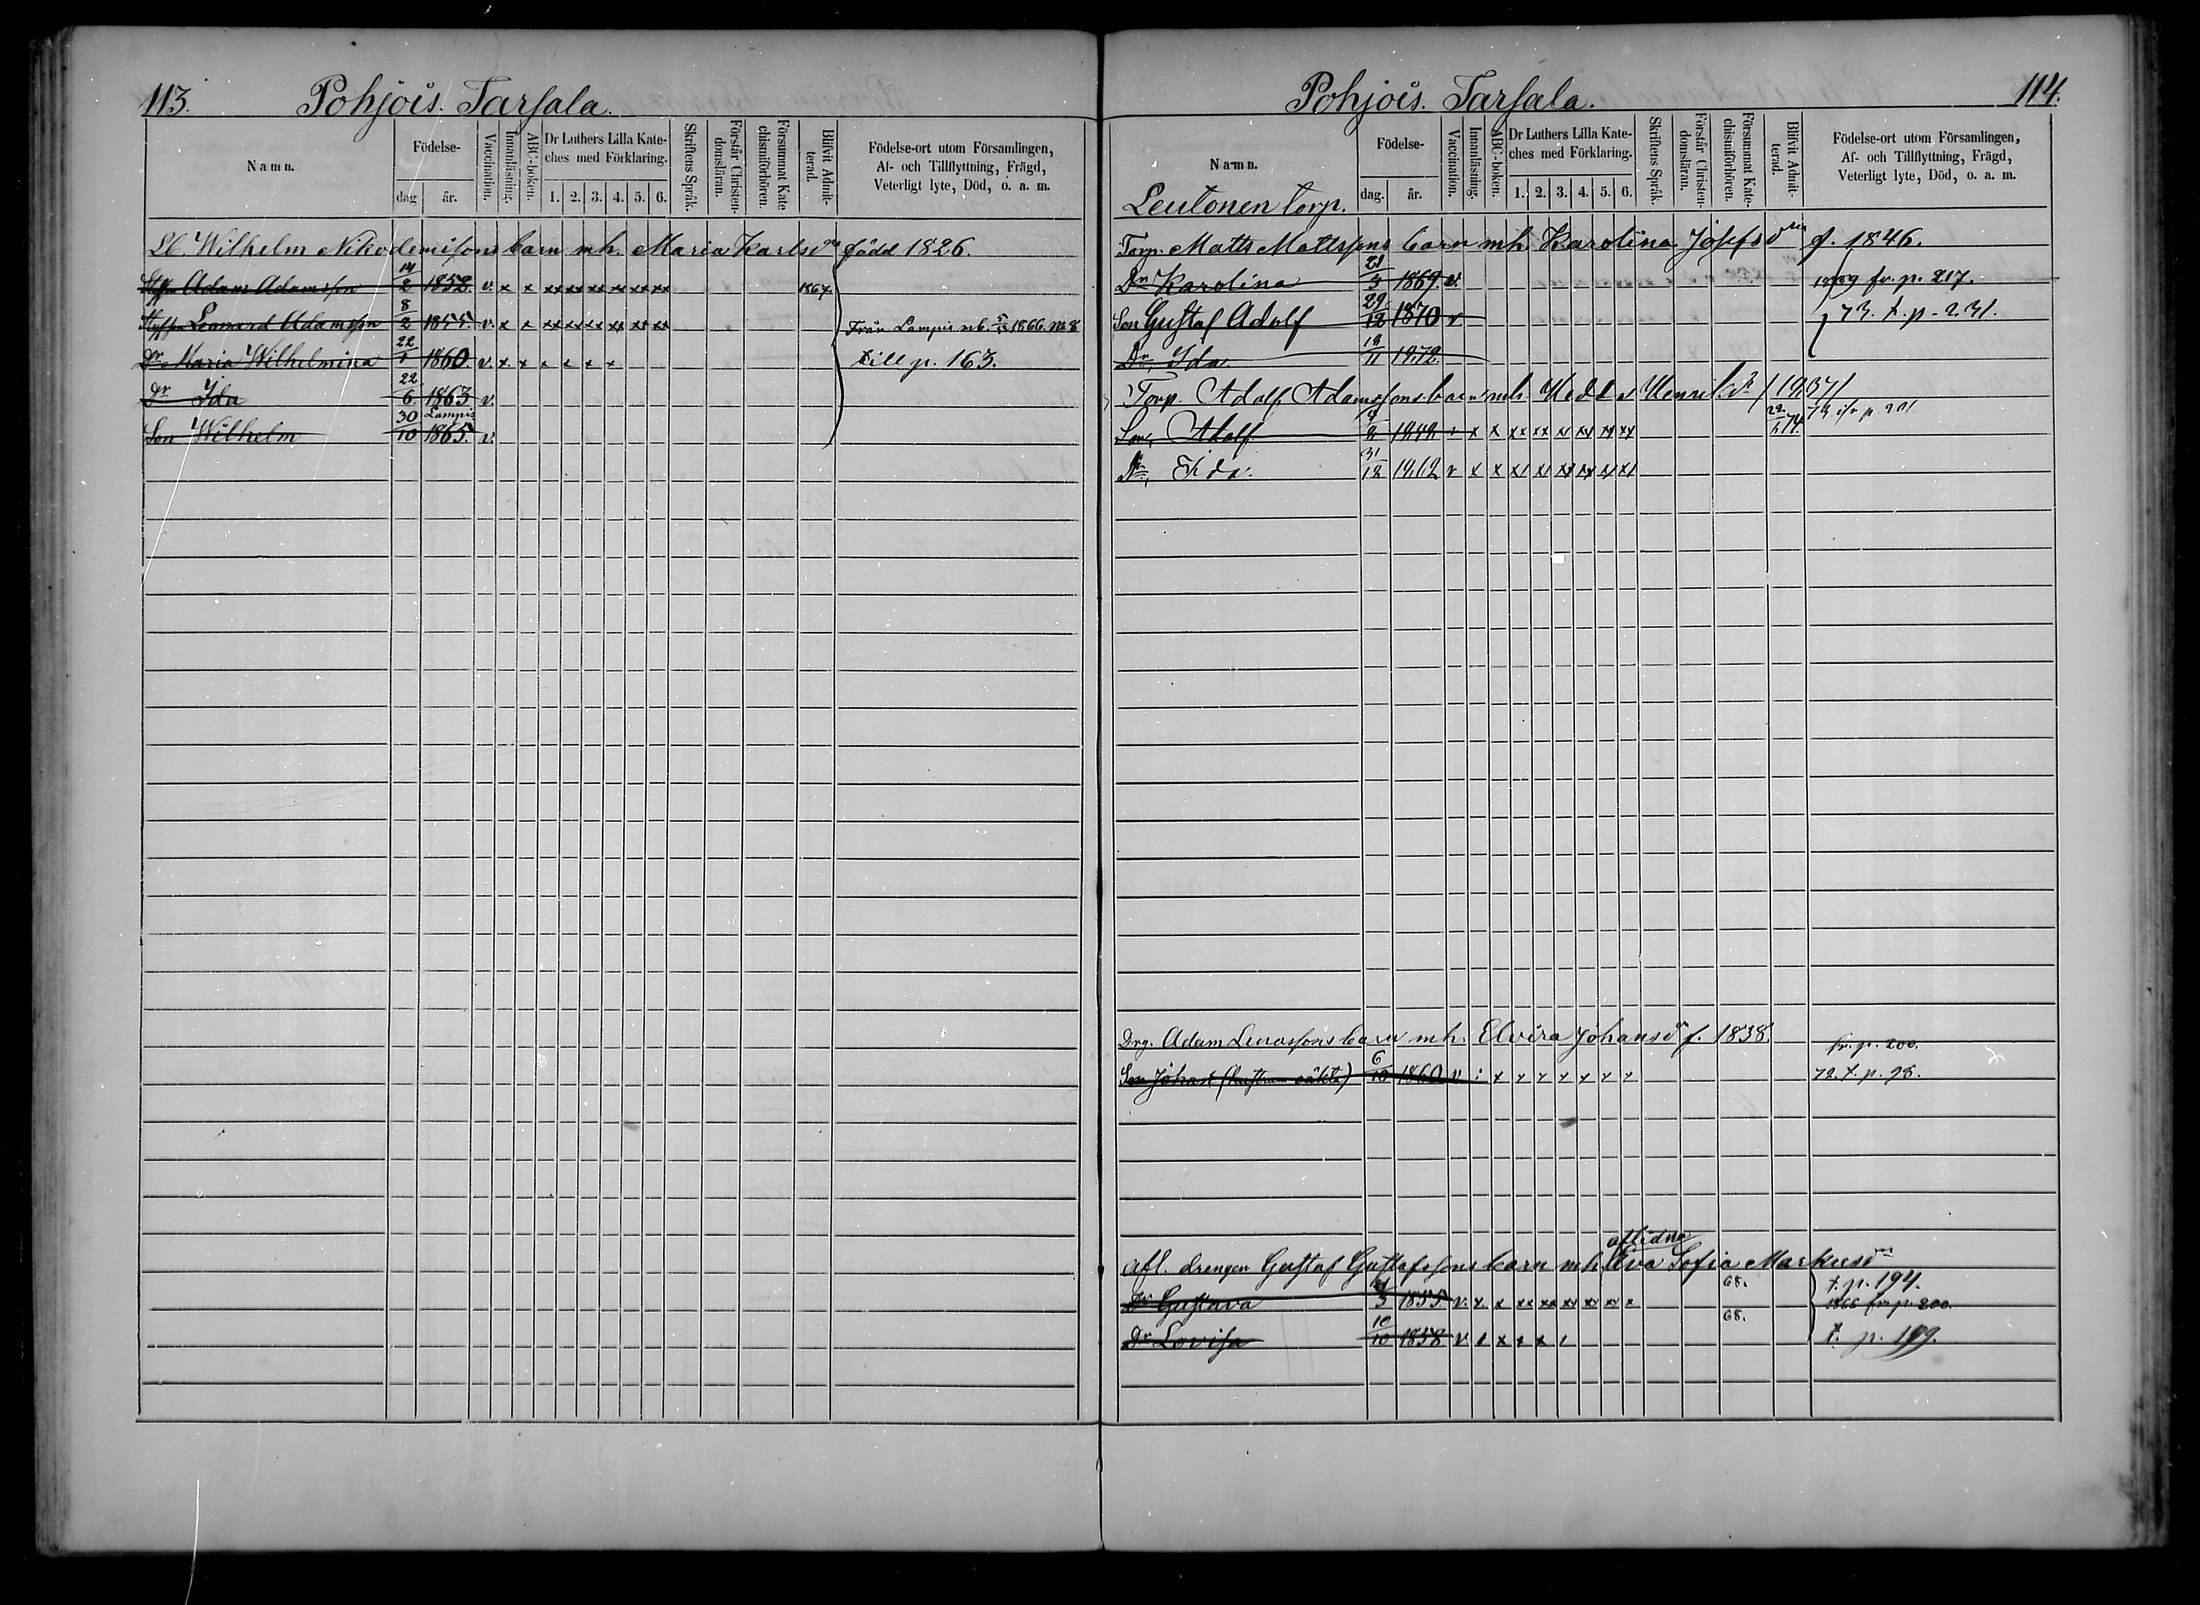 113. Pohjois. Tarsala.
Namn. Födelse- dag år. Vaccination. Innanläsning. ABC-boken. Dr Luthers Lilla Kateches med Förklaring. 1. 2. 3. 4. 5. 6. Skriftens Språk. Förstår Christendomsläran. Försummat Katechismiförhören. Blifvit Admitterad. Födelse-ort utom Församlingen, Af- och Tillflyttning, Frägd, Veterligt lyte, Död, o. a. m.
Lb. Wilhelm Nikodemissons barn mh. Maria Karlsdr född 1826.
Styfsn Adam Adamsson 14/2 1852. v. x x xx xx xx xx xx xx 1867.
Styfsn Leonard Adamsson 8/2 1855. v. x x xx xx xx xx xx xx Från Lampis mb. 1866. No 8
Dr Maria Wilhelmina 22/1 1860. v. x. x x x x x till p. 163.
Dr Ida 22/6 1863 v.
Son Wilhelm 30/10 Lampis 1865. v.
Pohjois. Tarsala. 114.
Namn. Födelse- dag. år. Vaccination. Innanläsning. ABC-boken. Dr Luthers Lilla Kateches med Förklaring. 1. 2. 3. 4. 5. 6. Skriftens Språk. Förstår Christendomsläran. Försummat Katechismiförhören. Blifvit Admitterad. Födelse-ort utom Församlingen, Af- och Tillflyttning, Frägd, Veterligt lyte, Död, o. a. m.
Leutonen torp.
Torp. Matts Mattssons barn mh. Karolina Josefsdr f. 1846.
Dr Karolina 21/3 1869. v. fr. p. 217.
Son Gustaf Adolf 29/12 1870 v 73. t. p. 231.
Dr, Ida 18/11 1872.
Torp. Adolf Adamssons barn mh. Hedda Henriksdr /1837/
Son, Adolf v x x xx xx xx xx xx 74. 73 fr p 201
Dr, Ida. 31/12 1862 v x x
Drg. Adam barn mh. Elvira Johansdr f. 1838. fr. p. 200.
Son Johan (hustruns oäkta) 6/10 1860 v : x x x x x x x 72. t. p. 98.
Afl. drengen Gustaf Gustafssons barn mh. aflidna Eva Sofia Markusdr
Dr Gustava 1855. v. x. x xx xx xx xx xx x 68. t. p. 194.
1866 fr p. 200.
Dr Lovisa 10/10 1858 v. 68. t. p. 199.